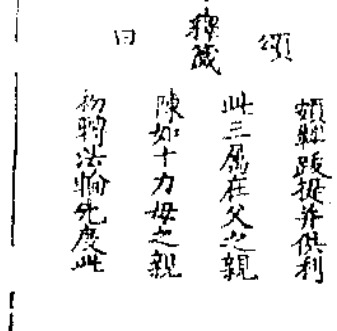 頌
釋藏
曰
頞鞞跋提并俱利
此三屬在父之親
陳如十力母之親
初轉法輪先度此